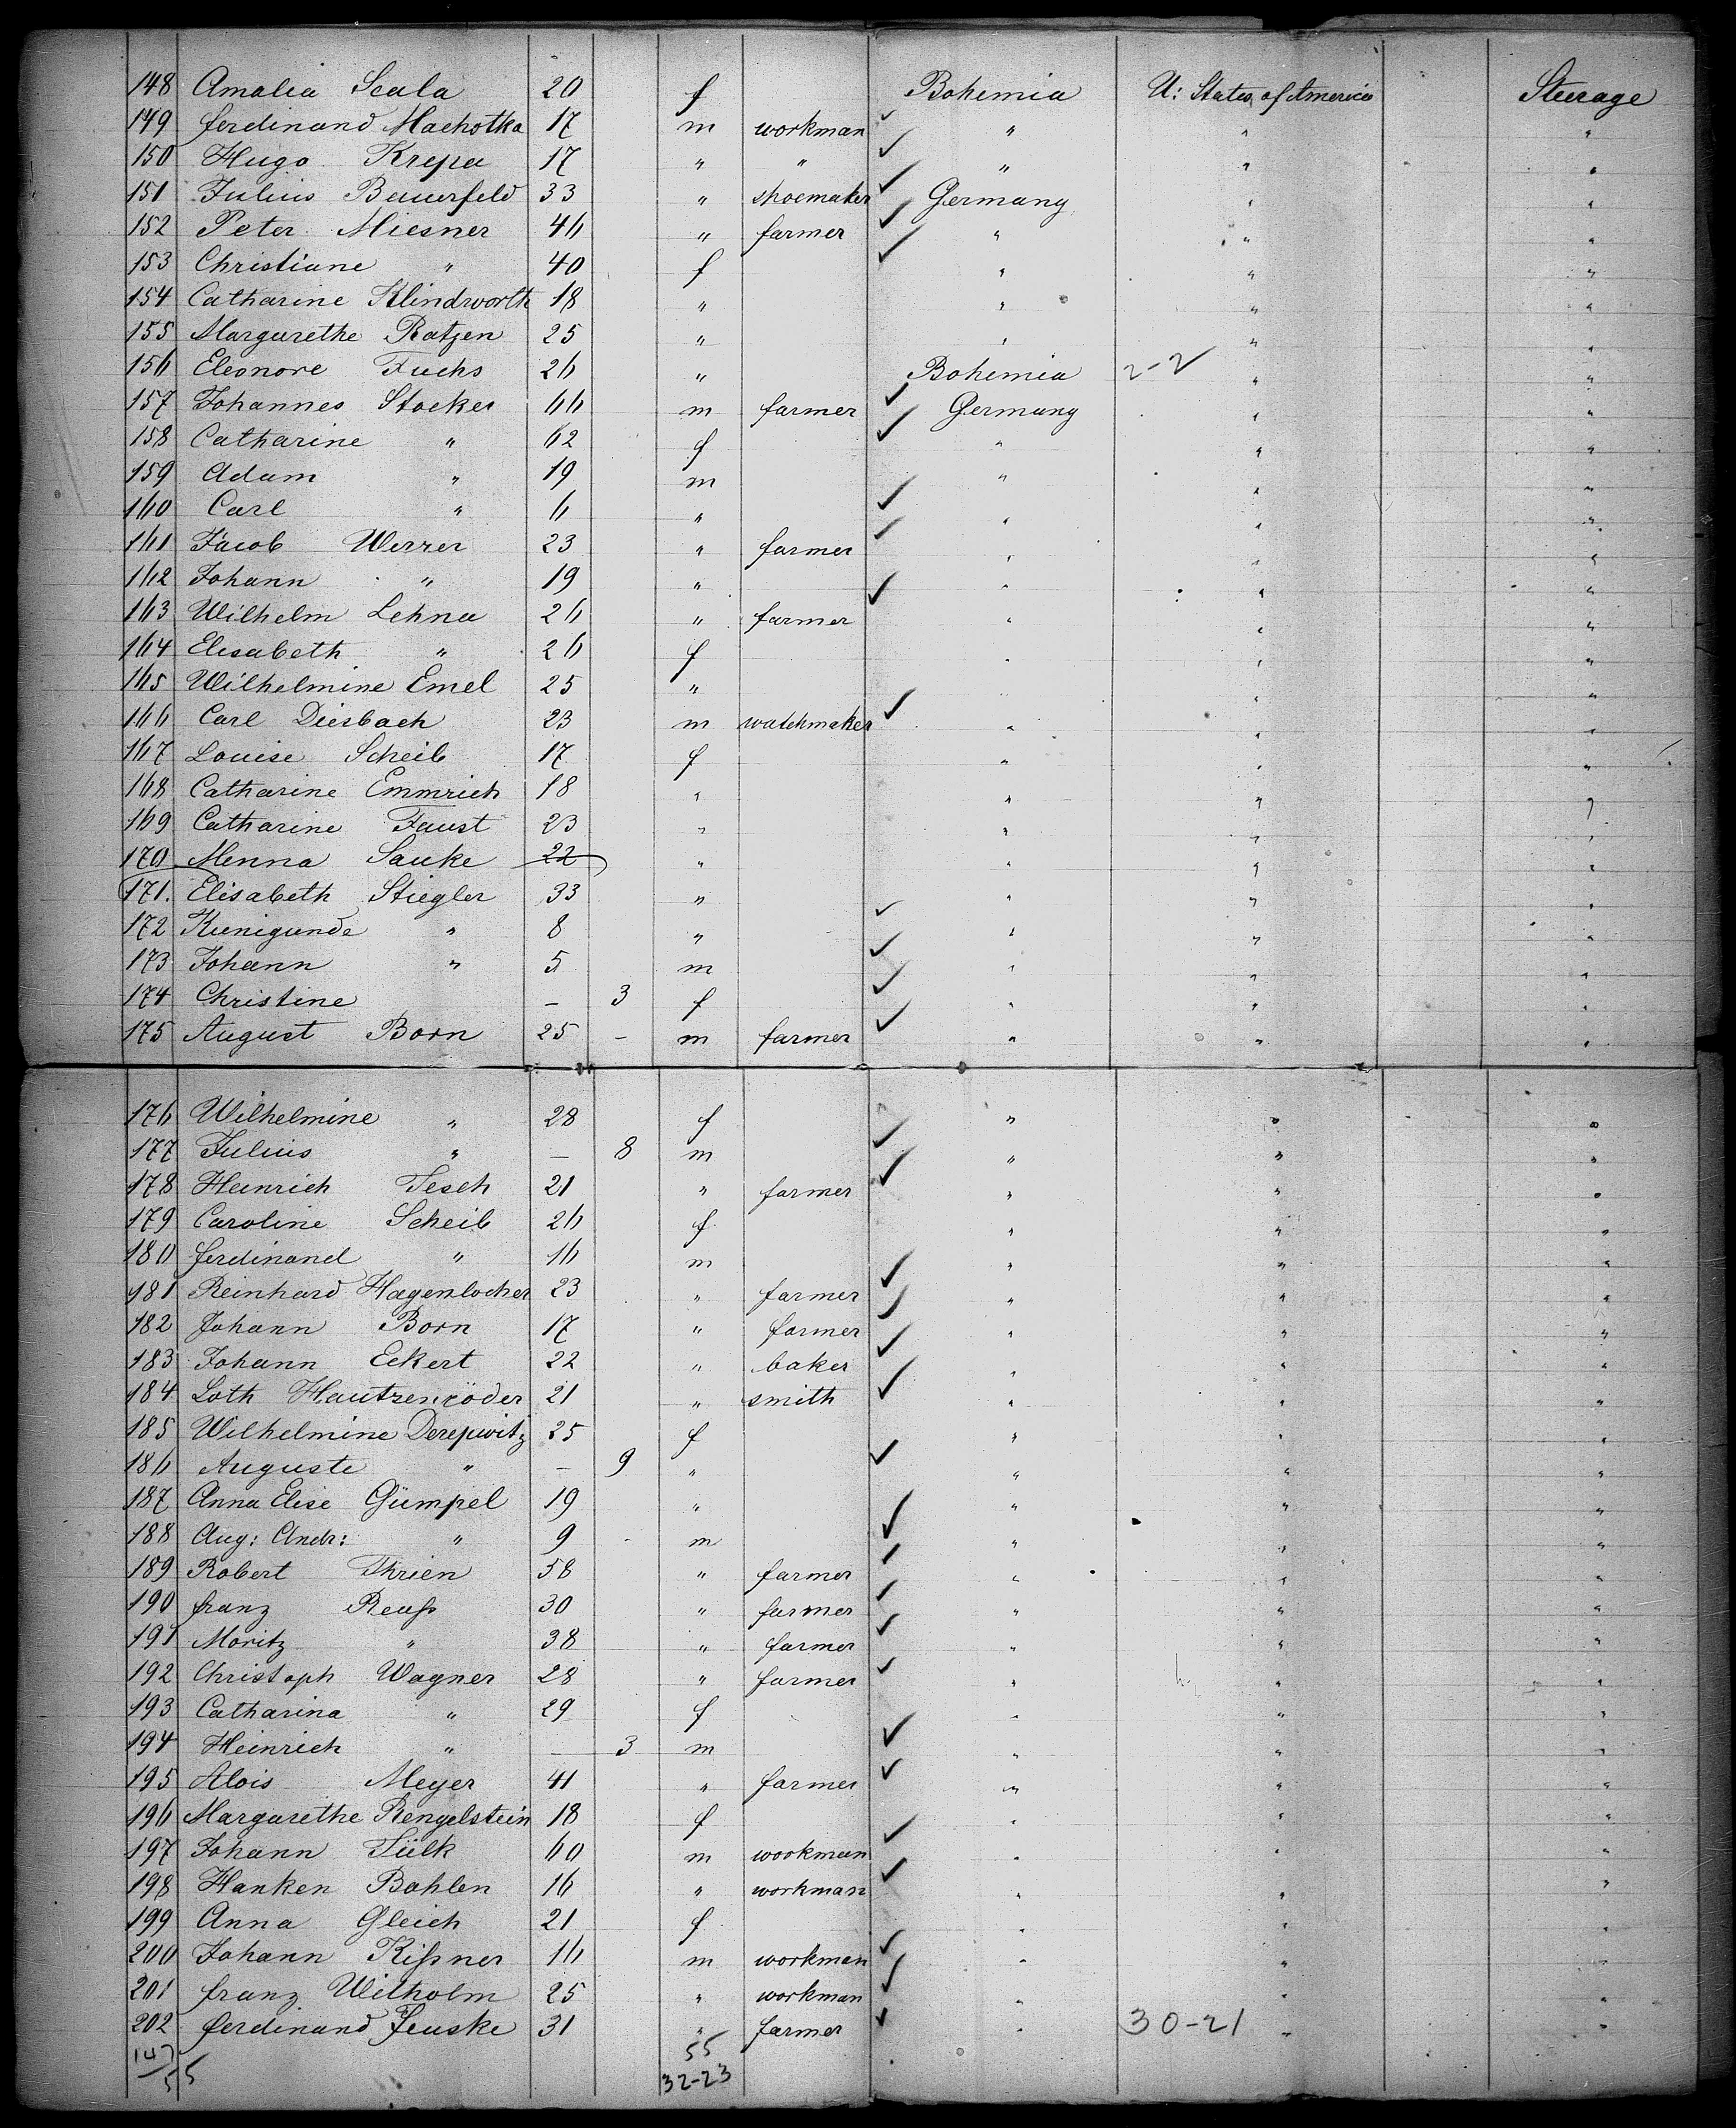 148 Amalia Scala 20 f Bohemia U: States of America Steerage
149 Ferdinand Machotka 17 m workman " " "
150 Hugo Krepa 17 " " " " "
151 Julius Beuerfeld 33 " shoemaker Germany " "
152 Peter Miesner 46 " farmer " " "
153 Christiane " 40 f " " "
154 Catharine Klindworth 18 " " " "
155 Margarethe Ratzen 25 " " " "
156 Eleonore Fuchs 26 " Bohemia 2-2 " "
157 Johannes Stocker 66 m farmer Germany " "
158 Catharine " 62 f " " "
159 Adam " 19 m " " "
160 Carl " 6 " " " "
161 Jacob Werrer 23 " farmer " " "
162 Johann " 19 " " " "
163 Wilhelm Lehna 26 " farmer " " "
164 Elisabeth " 26 f " " "
165 Wilhelmine Emel 25 " " " "
166 Carl Diesbach 23 m watchmaker " " "
167 Louise Scheib 17 f " " "
168 Catharine Emmrich 18 " " " "
169 Catharine Faust 23 " " " "
170 Menna Sauke 22 " " " "
171. Elisabeth Stiegler 33 " " " "
172 Kunigunde " 8 " " " "
173 Johann " 5 m " " "
174 Christine — 3 f " " "
175 August Born 25 – m farmer " " "
176 Wilhelmine " 28 f " " "
177 Julius " — 8 m " " "
178 Heinrich Tesch 21 " farmer " " "
179 Caroline Scheib 26 f " " "
180 Ferdinand " 16 m " " "
181 Reinhard Hagenlocher 23 " farmer " " "
182 Johann Born 17 " farmer " " "
183 Johann Eckert 22 " baker " " "
184 Loth Hautzenröder 21 " smith " " "
185 Wilhelmine Derepwitz 25 f " " "
186 Auguste " — 9 " " " "
187 Anna Elise Gümpel 19 " " " "
188 Aug: Andr: " 9 - m " " "
189 Robert Thrien 58 " farmer " " "
190 Franz Reuß 30 " farmer " " "
191 Moritz " 38 " farmer " " "
192 Christoph Wagner 28 " farmer " " "
193 Catharina " 29 f " " "
194 Heinrich " — 3 m " " "
195 Alois Meyer 41 " farmer " " "
196 Margarethe Rengelstein 18 f " " "
197 Johann Sülk 60 m workman " " "
198 Hanken Bohlen 16 " workman " " "
199 Anna Gleich 21 f " " "
200 Johann Kißner 16 m workman " " "
201 Franz Witholm 25 " workman " " "
202 Ferdinand Jeuske 31 " farmer " 30-21 " "
147 55
55 32-23